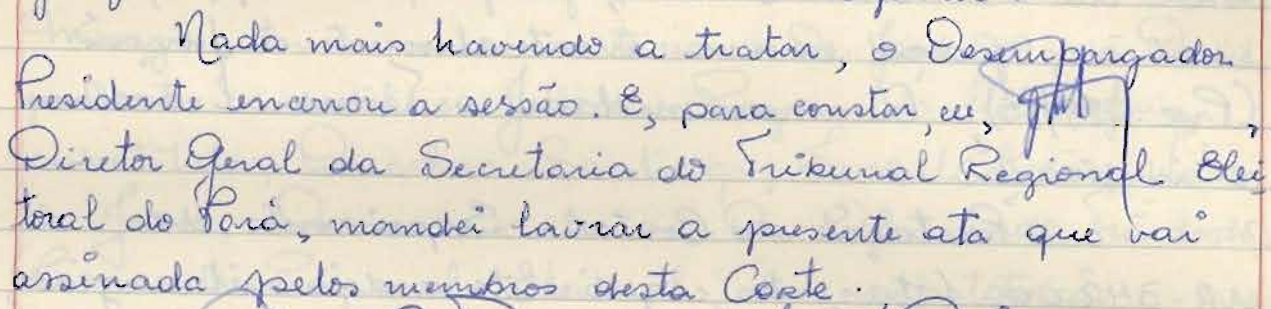 Nada mais havendo a tratar, o Desembargador
Presidente encerrou a sessão. E, para constar, eu, ,
Diretor Geral da Secretaria do Tribunal Regional Elei
toral do Pará, mandei lavrar a presente ata que vai
assinada pelos membros desta Corte.